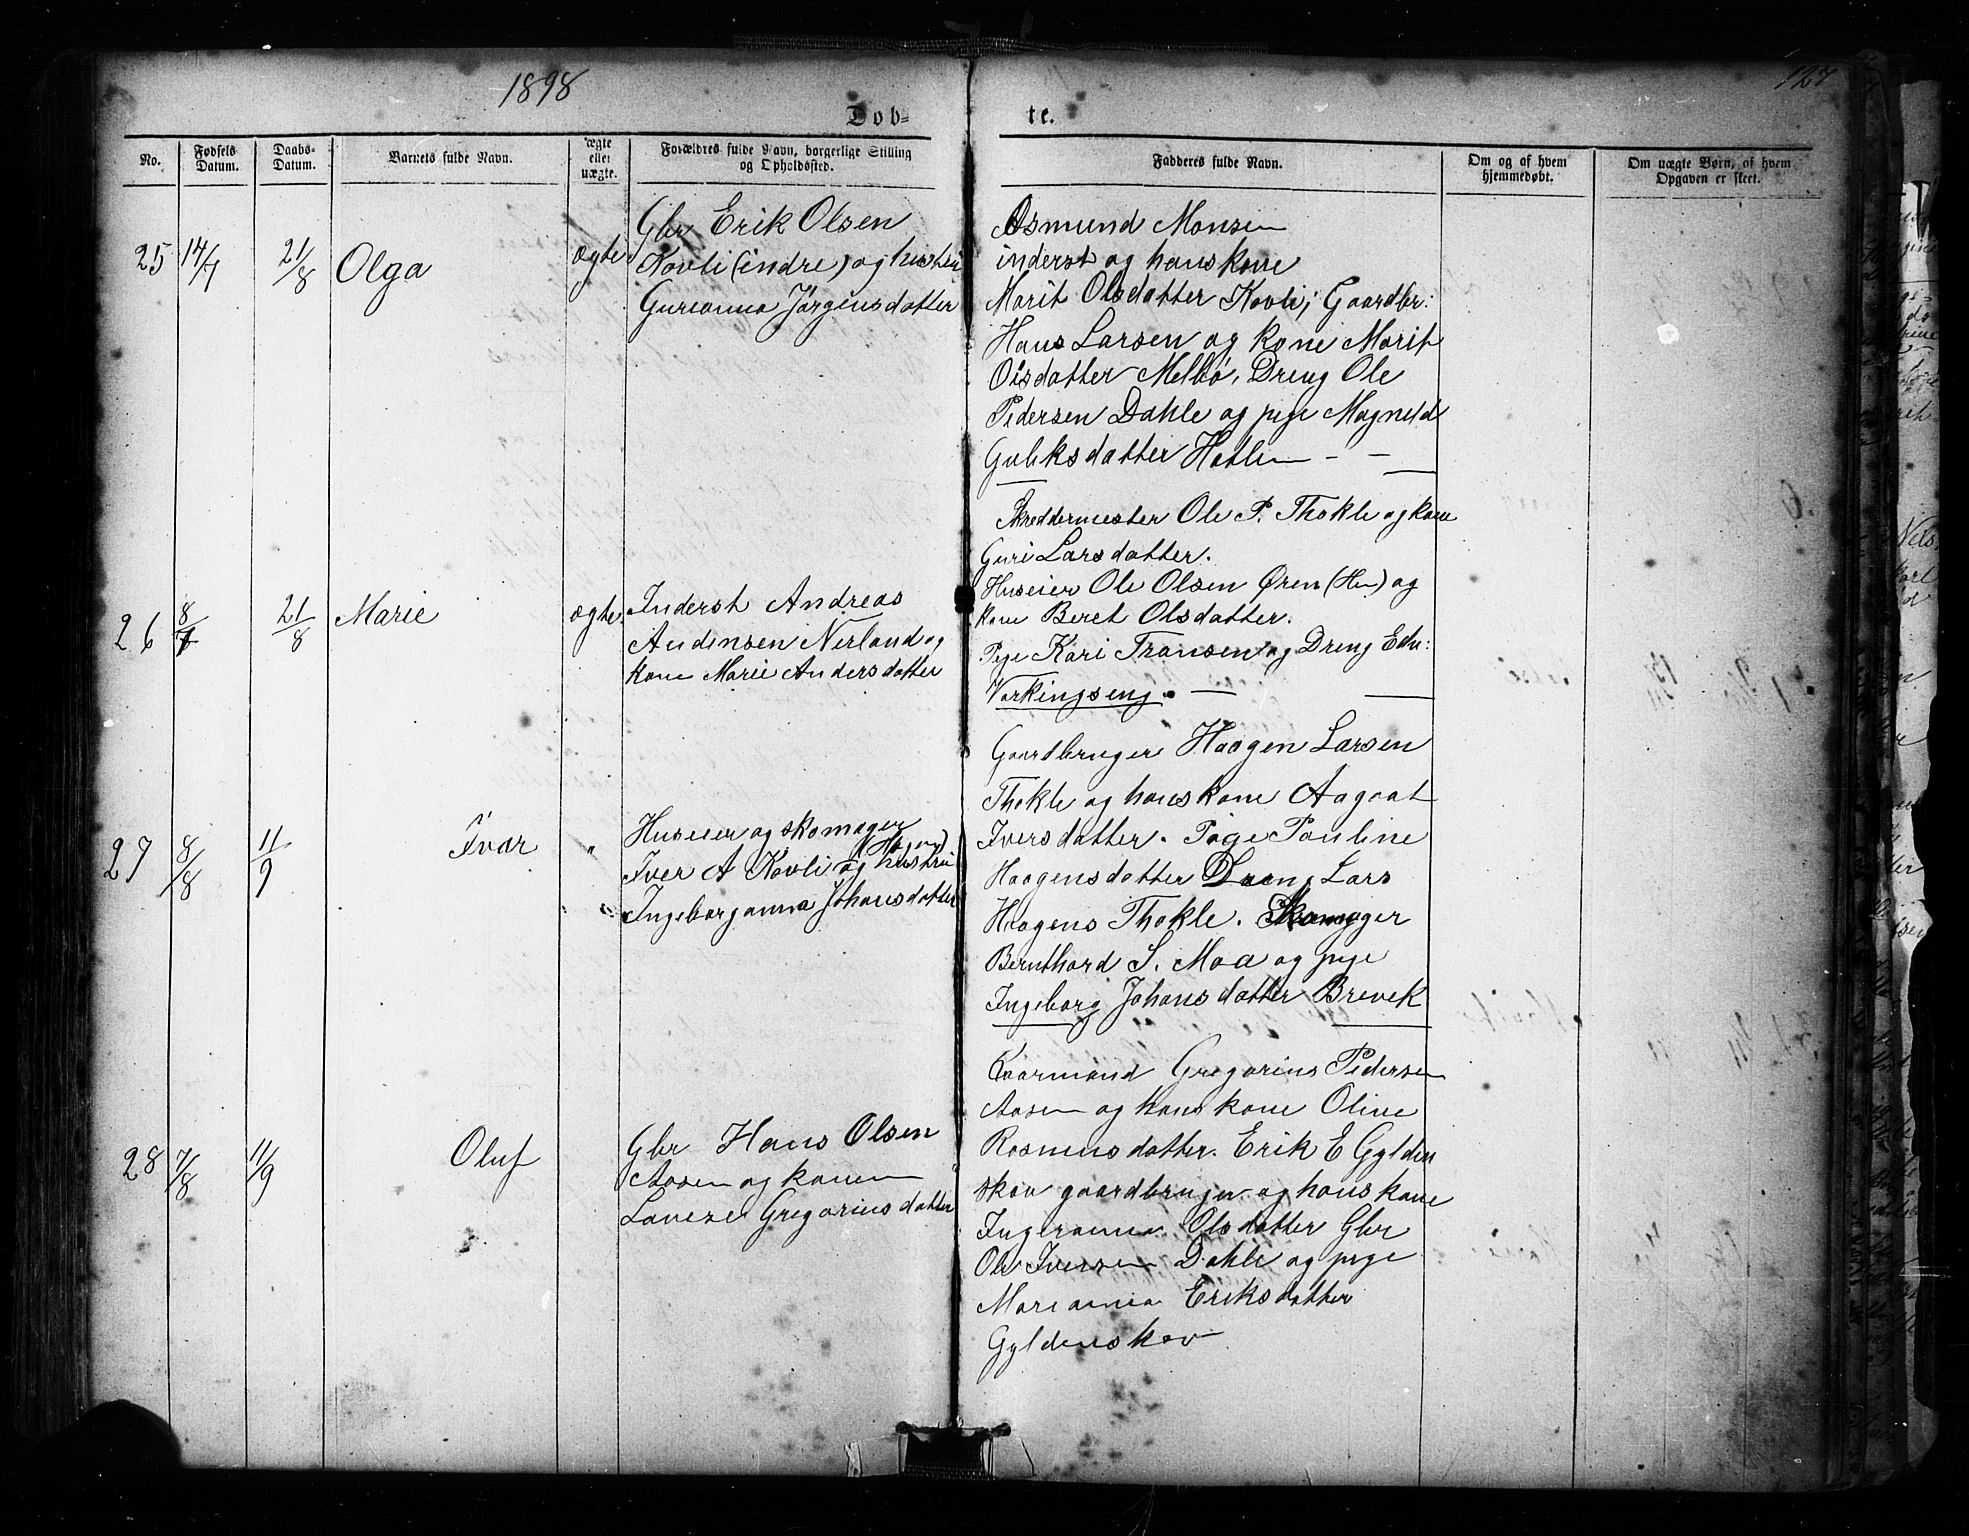 1898
127
Døb-
te.
No.
Fødsels Datum.
Daabs- Datum.
Barnets fulde Navn.
ægte eller uægte.
Forældres fulde Navn, borgerlige Stilling og Opholdssted.
Fadderes fulde Navn.
Om og af hvem hjemmedøbt.
Om uægte Børn, af hvem Opgaven er skeet.
25 14/7 21/8 Olga ægte
Gbr Erik Olsen
Kovli (indre) og hustru
Gureanna Jørgensdatter
Osmund Monsen
inderst og hans kone
Marit Olsdatter Kovli; Gaardbr:
Hans Larsen og kone Marit
Olsdatter Melbø, Dreng Ole
Pedersen Dahle og pige Magnild
Guliksdatter Hatlen - -
26 8/7 21/8 Marie ægte
Inderst Andreas
Andersen Nerland og
kone Marie Andersdatter
Skreddermester Ole P. Thokle og kone
Guri Larsdatter.
Huseier Ole Olsen Øren (Hen) og
kone Beret Olsdatter.
Pige Kari Fransen og Dreng Edv:
Varkingseng. -
27 8/8 11/9 Ivar "
Huseier og skomager
Iver A Kovli og hustru
Ingeborganna Johansdatter
Gaardbruger Haagen Larsen
Thokle og hans kone Aagaat
Iversdatter. Pige Pauline
Haagensdatter Dreng Lars
Hagens Thokle. Skomager
Bernthard S. Moa og pige
Ingeborg Johansdatter Brevek
28 7/8 11/9 Oluf
Gbr Hans Olsen
Aasen og konen
Lovise Gregoriusdatter
Kaarmand Gregorius Pedersen
Aasen og hans kone Oline
Rasmusdatter. Erik E Gylden
skov gaardbruger og hans kone
Ingeranna Olsdatter Gbr
Ole Iversen Dahle og pige
Marianna Eriksdatter
Gyldenskov